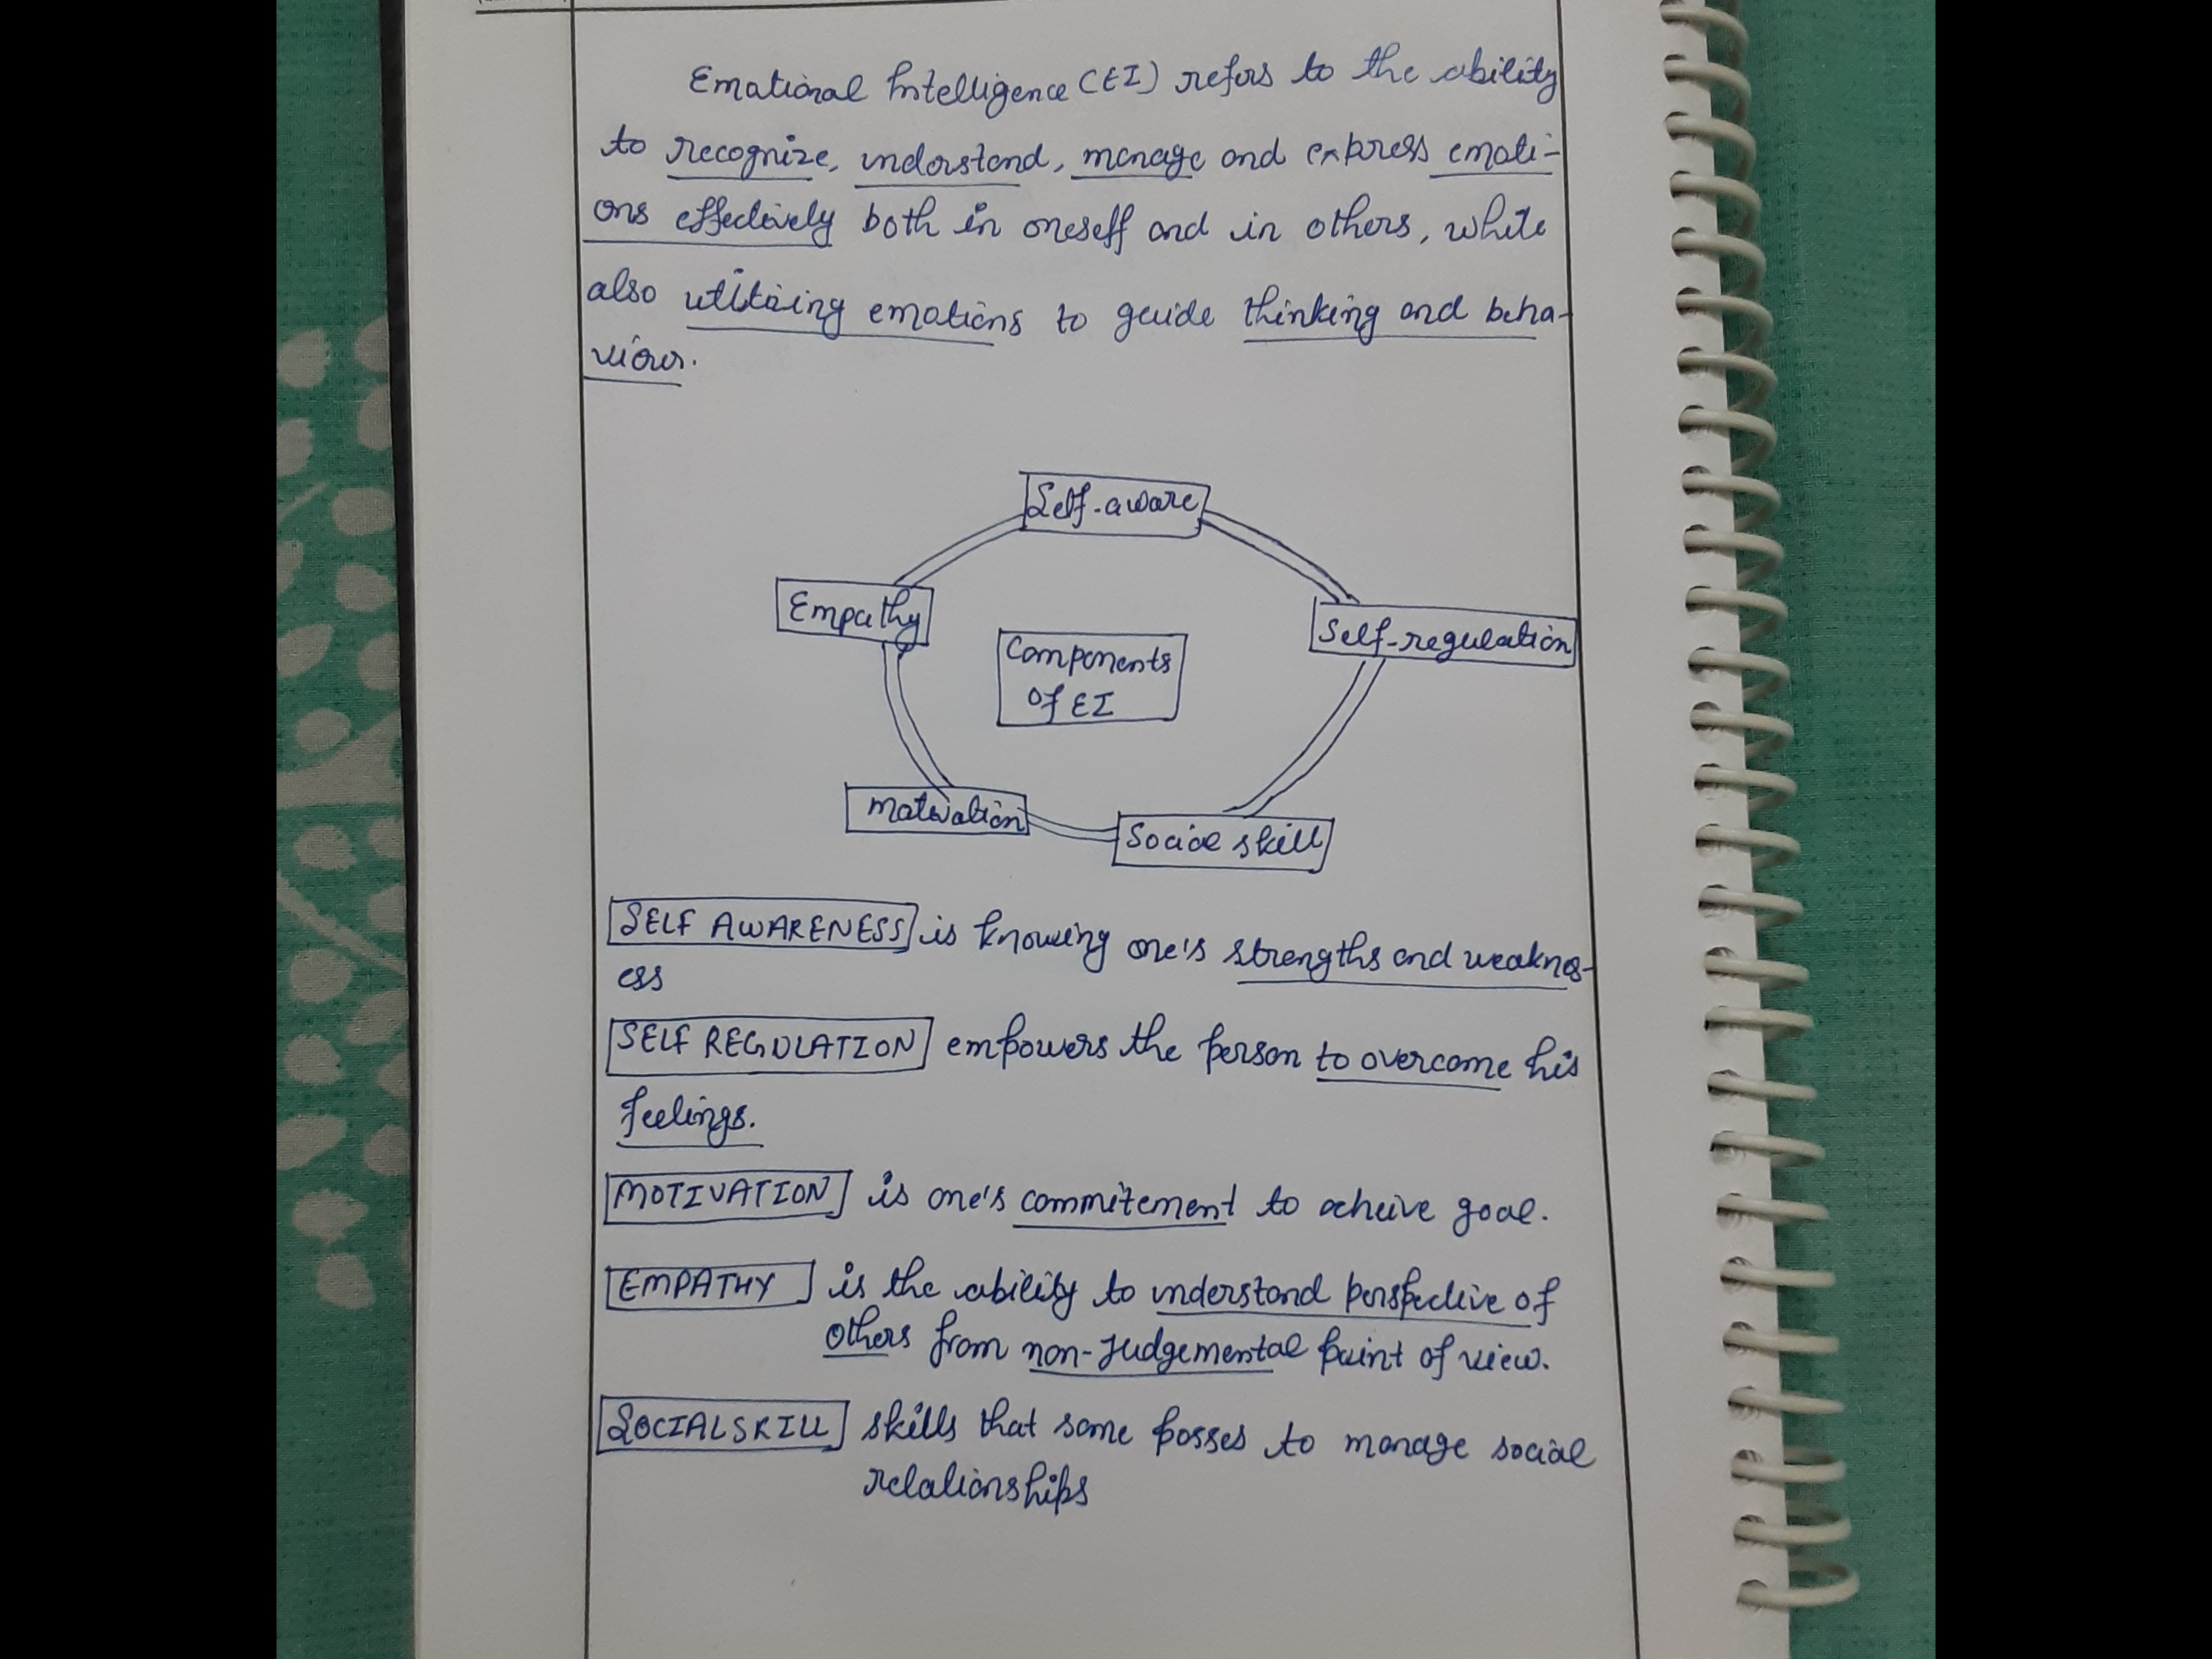 Emotional Intelligence (EI) refers to the ability
to recognize, understand, manage and express emoti-
ons effectively both in oneself and in others, while
also utilizing emotions to guide thinking and beha-
viour.
Self-aware
Empathy
Self-regulation
Components
of EI
Motivation
Social skill
SELF AWARENESS is knowing one's strengths and weaknes-
ess
SELF REGULATION empowers the person to overcome his
feelings.
MOTIVATION is one's commitement to acheive goal.
EMPATHY is the ability to understand perspective of
others from non-Judgemental point of view.
SOCIAL SKILL skills that some posses to manage social
relationships